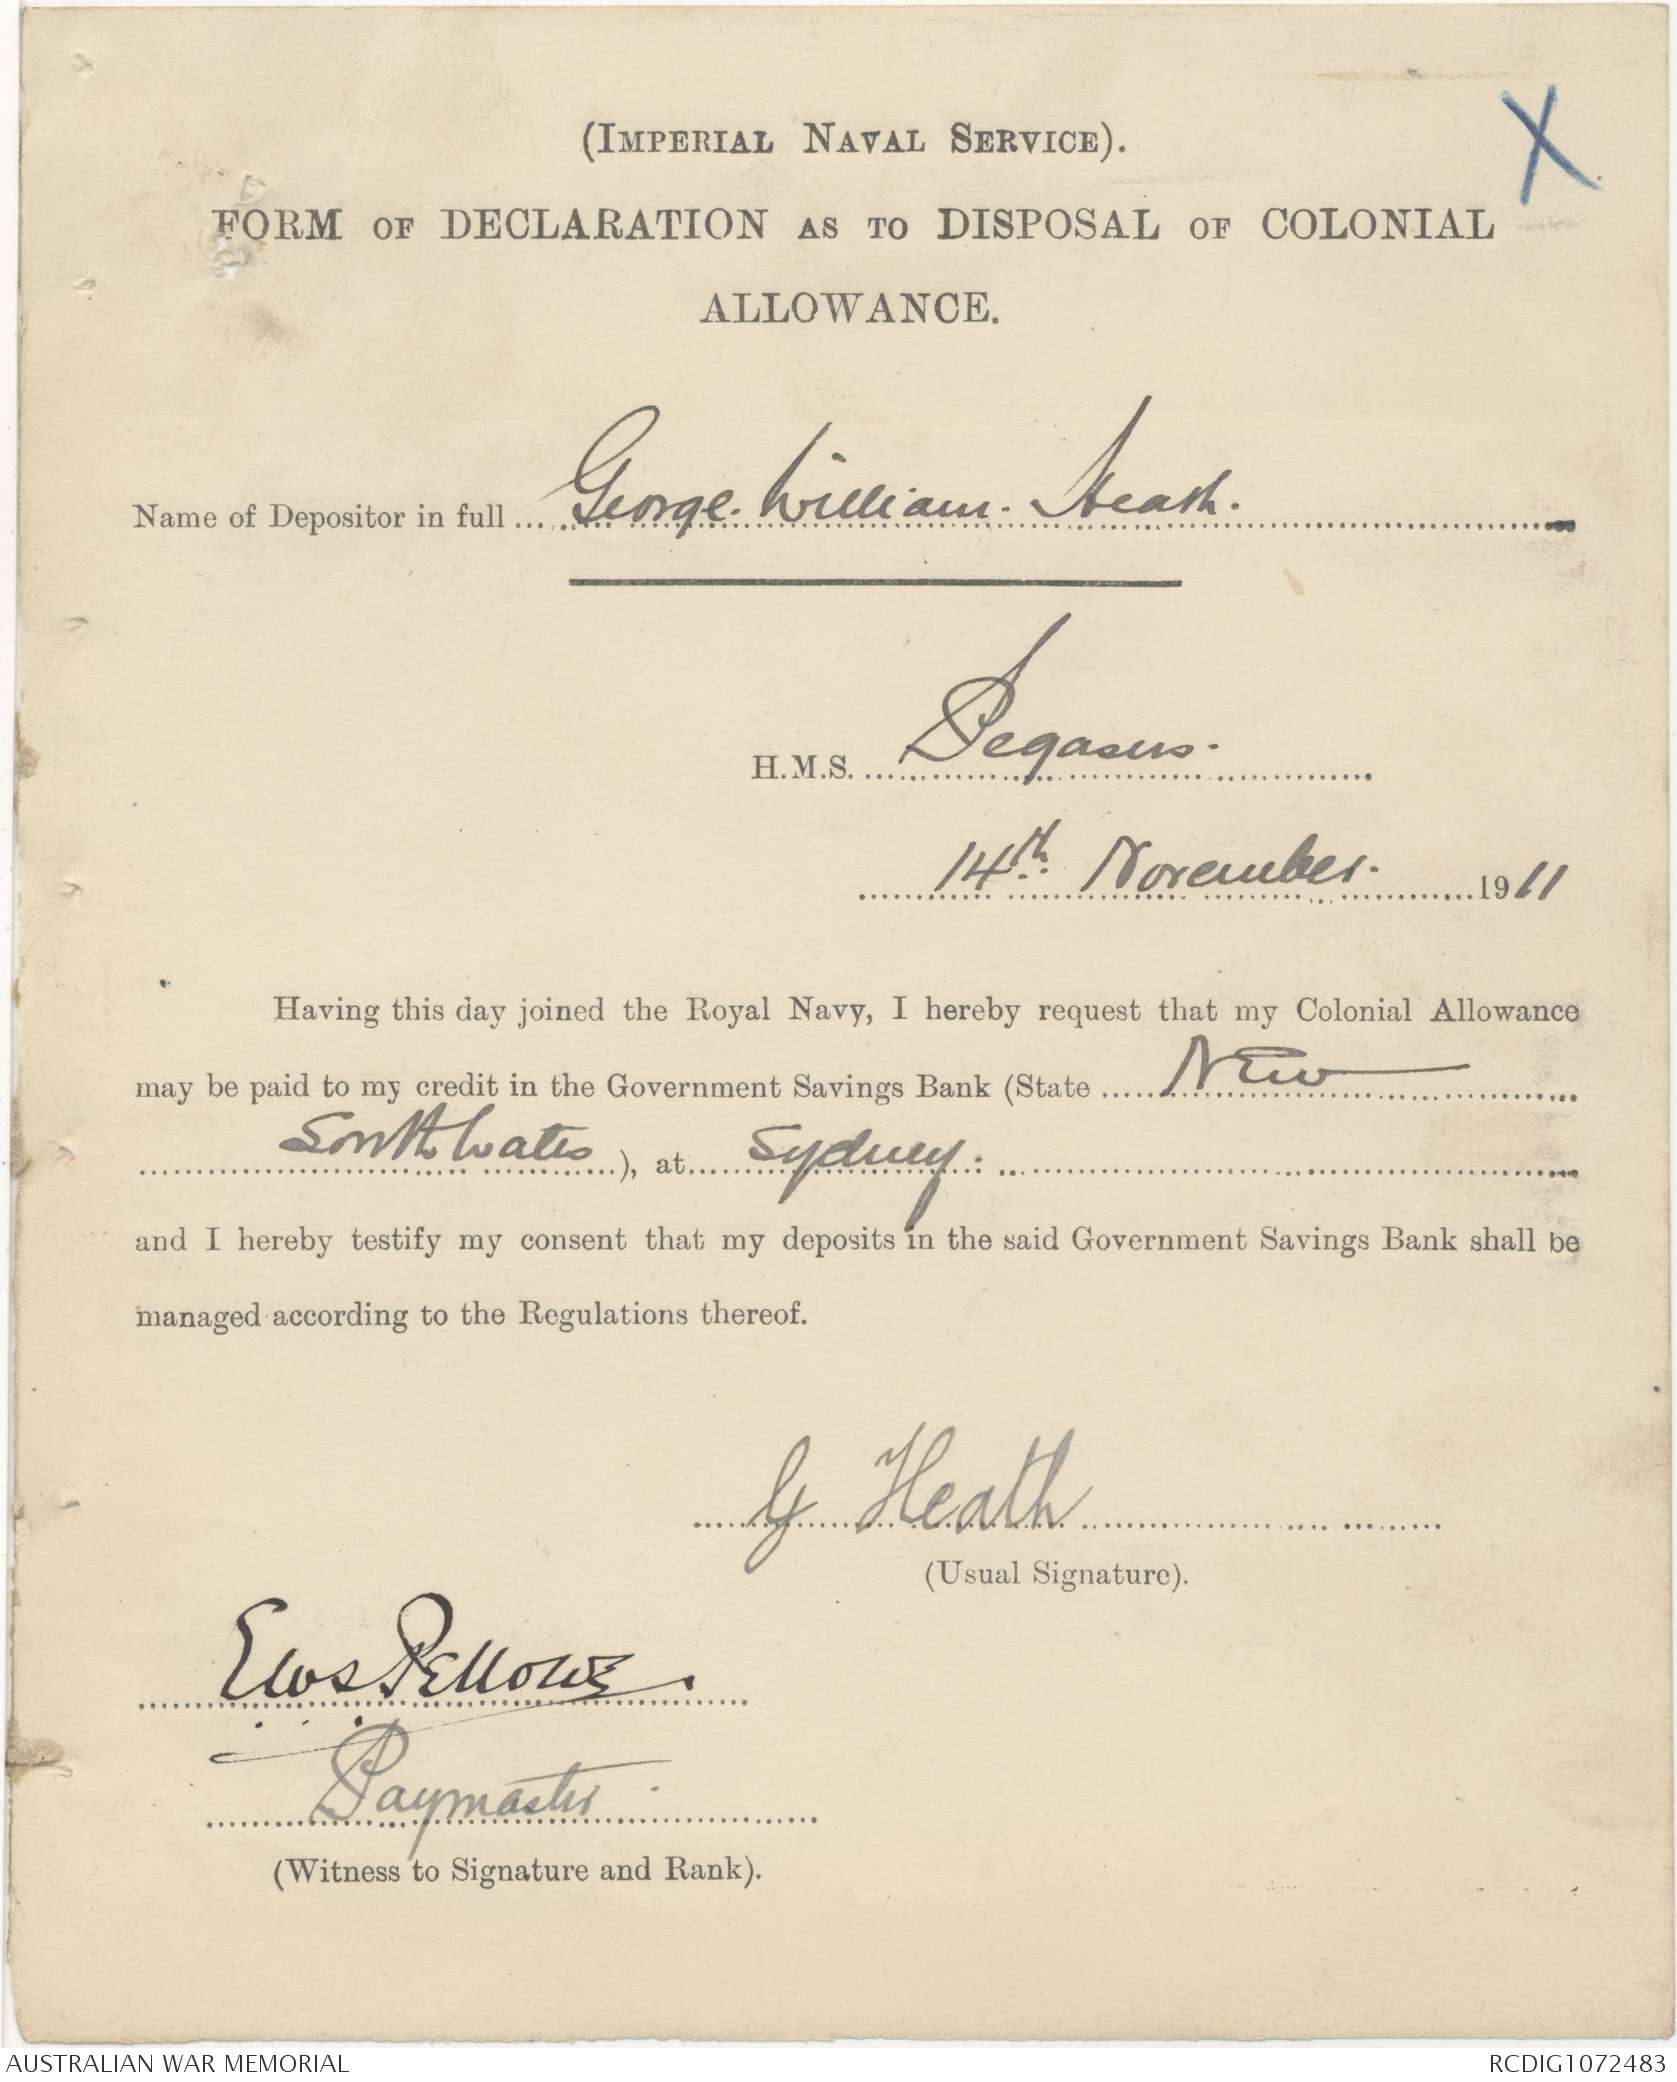 X
(IMPERIAL NAVAL SERVICE).
FORM OF DECLARATION AS TO DISPOSAL OF COLONIAL
ALLOWANCE.
Name of Depositor in full George. William. Heath.
H.M.S. Pegasus.
14th November. 1911
Having this day joined the Royal Navy, I hereby request that my Colonial Allowance
may be paid to my credit in the Government Savings Bank (State New
South Wales), at Sydney.
and I hereby testify my consent that my deposits in the said Government Savings Bank shall be
managed according to the Regulations thereof.
G Heath
(Usual Signature).
Fellowes
Paymaster
(Witness to Signature and Rank).
AUSTRALIAN WAR MEMORIAL
RCDIG1072483